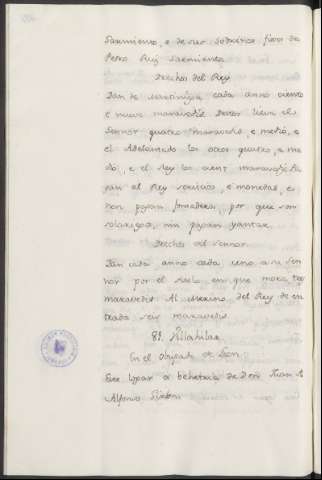 Sarmiento, e de sus sobrinos fixos de
Pedro Ruiz Sarmiento
Derechos del Rey
Dan de martiniega cada anno ciento
e nueve maravedis
Sennor quatro maravedis, e medio, e
el Adelantado los otros quatro, e me
dio, e el Rey los cient maravedis
al Rey servicios, e monedas, e
non pagan fonsadera, por que son
solariegos, nin pagan yantar.
Derechos del Sennor.
Dan cada anno cada uno a su Sen
nor por el suelo en que mora tres
maravedis. Al Merino del Rey de en
trada seis maravedis
81. Villahilar
En el Obispado de Leon.
Este logar es behetria de Don Juan
Alfonso